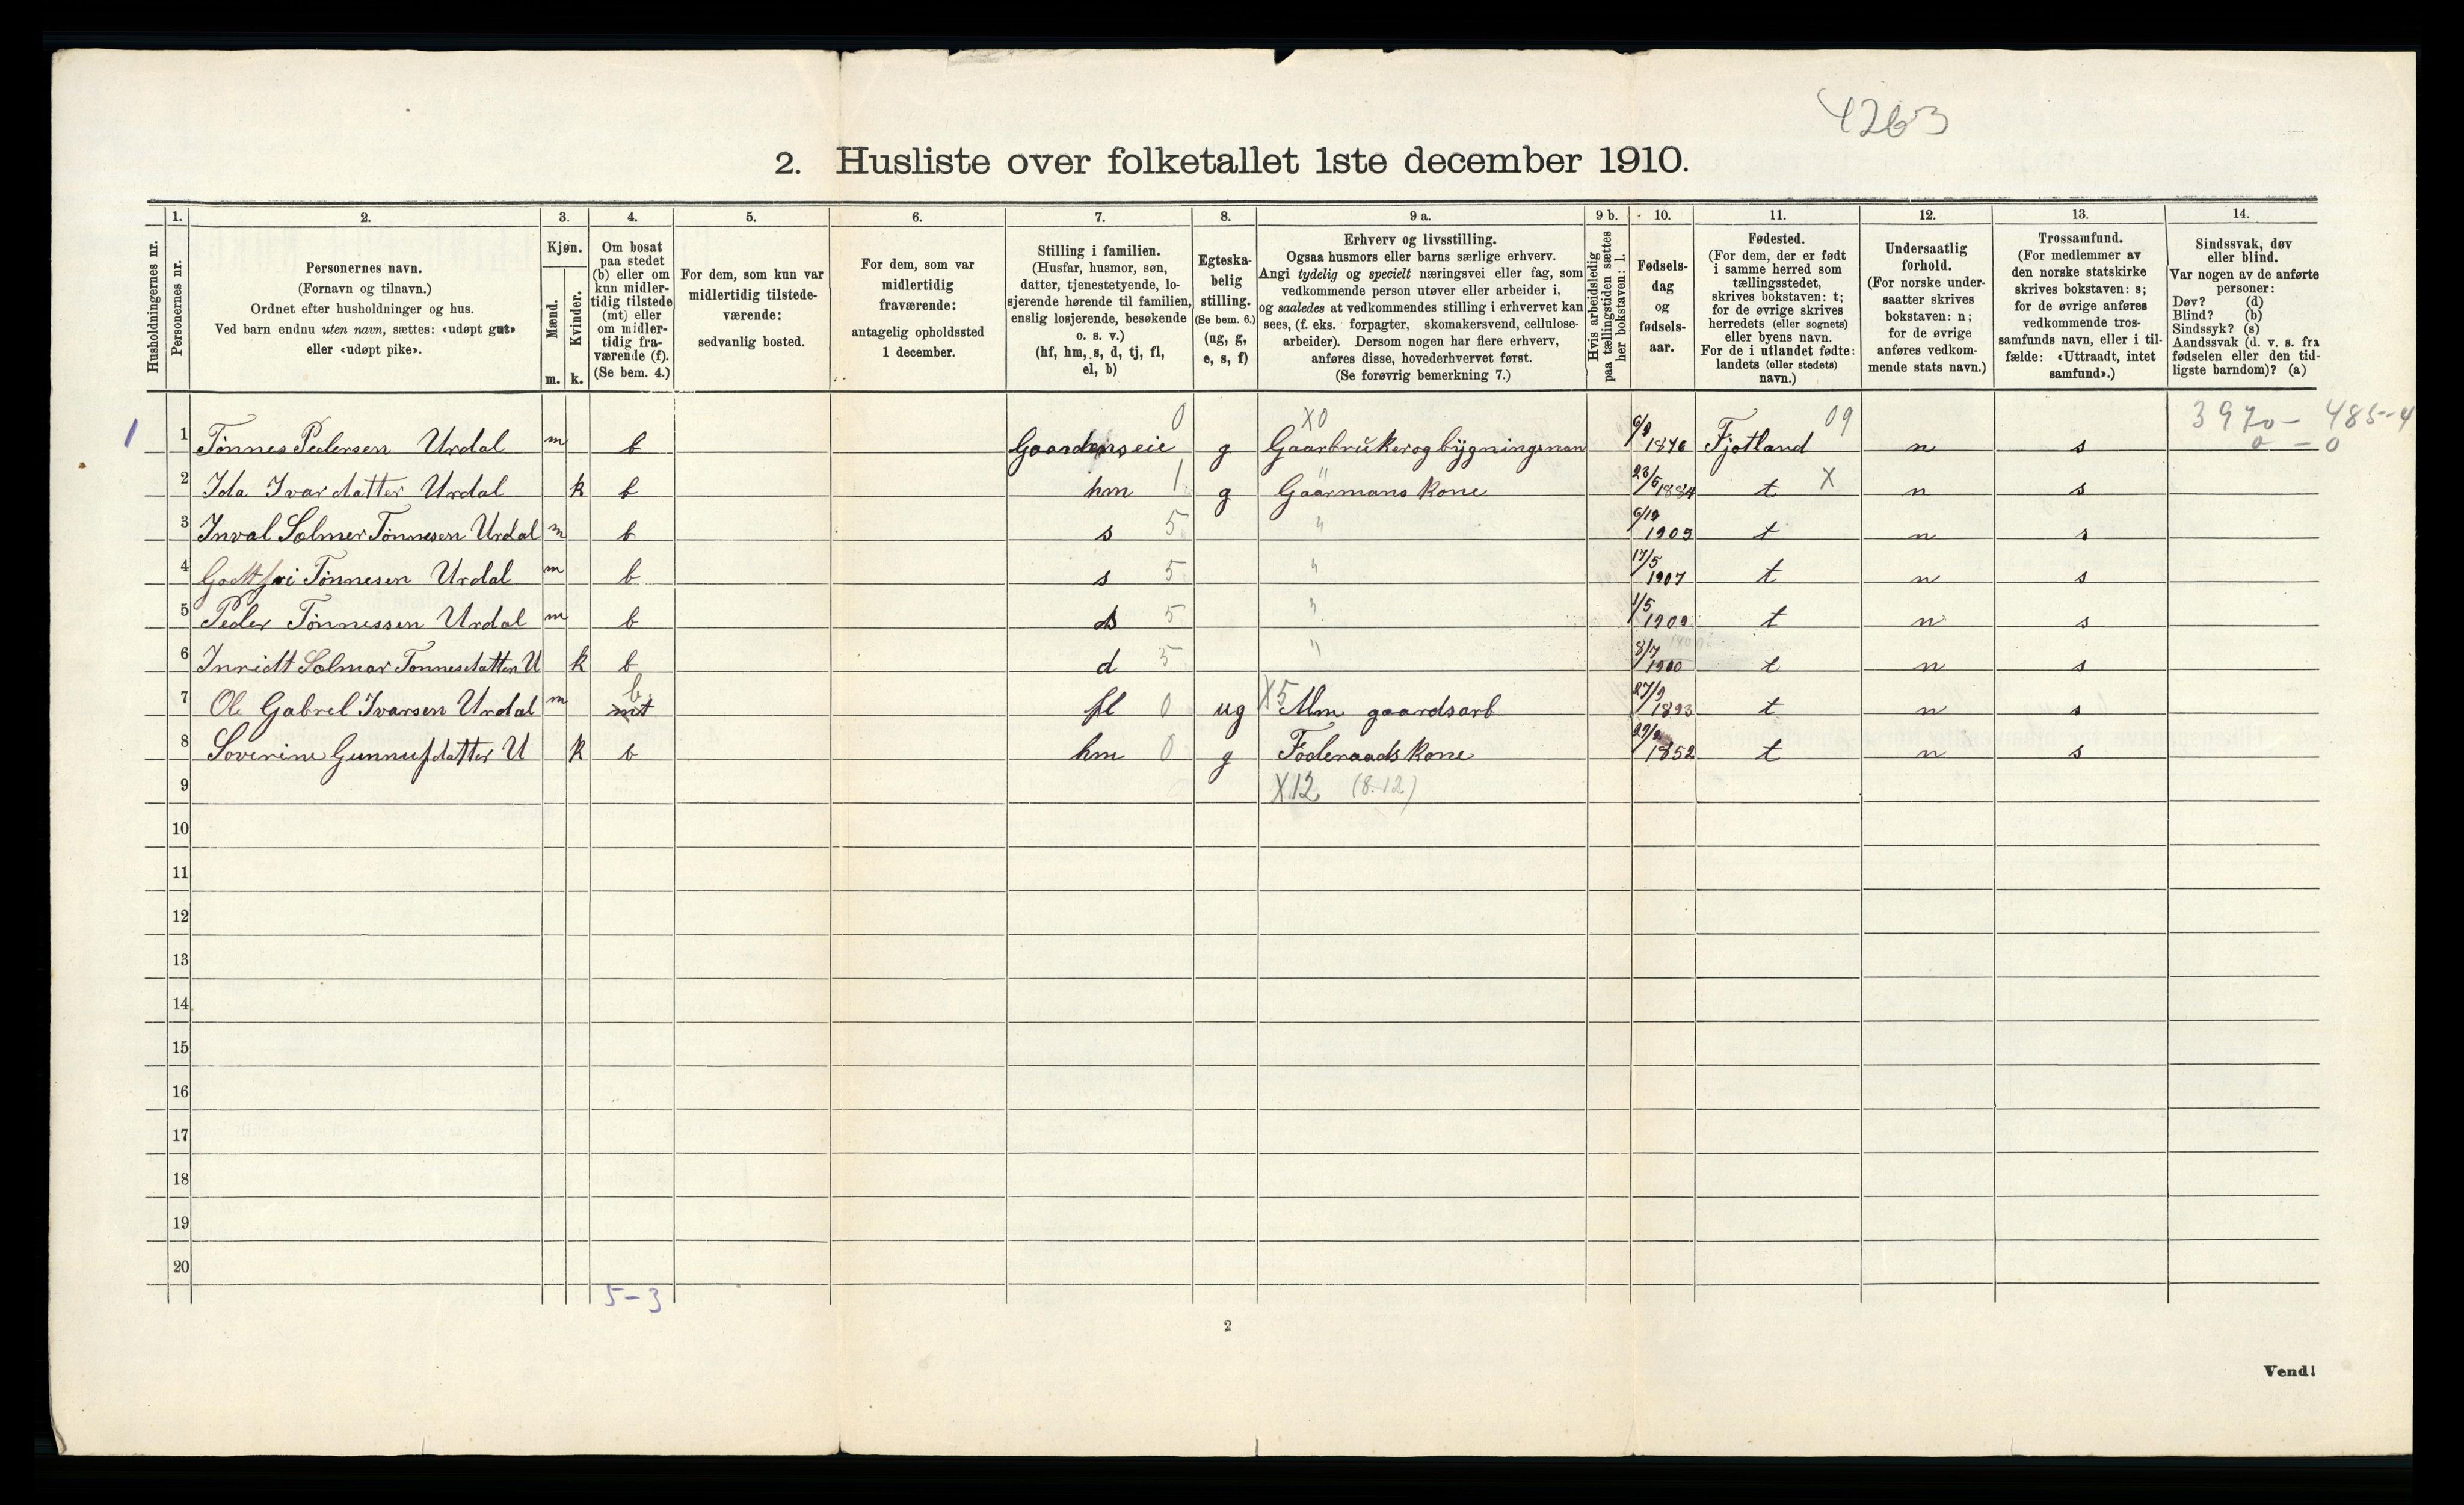 4263
2. Husliste over folketallet 1ste december 1910.
Husholdningernes nr.
1.
Personernes nr.
2.
Personernes navn.
(Fornavn og tilnavn.)
Ordnet efter husholdninger og hus.
Ved barn endnu uten navn, sættes: «udøpt gut»
eller «udøpt pike».
3.
Kjøn.
Mænd.
Kvinder.
m. k.
4.
Om bosat
paa stedet
(b) eller om
kun midler-
tidig tilstede
(mt) eller
om midler-
tidig fra-
værende (f).
(Se bem. 4.)
5.
For dem, som kun var
midlertidig tilstede-
værende:
sedvanlig bosted.
6.
For dem, som var
midlertidig
fraværende:
antagelig opholdssted
1 december.
7.
Stilling i familien.
(Husfar, husmor, søn,
datter, tjenestetyende, lo-
sjerende hørende til familien,
enslig losjerende, besøkende
o. s. v.)
(hf, hm, s, d, tj, fl,
el, b)
8.
Egteska-
belig
stilling.
(Se bem. 6.)
(ug, g,
e, s, f)
9 a.
Erhverv og livsstilling.
Ogsaa husmors eller barns særlige erhverv.
Angi tydelig og specielt næringsvei eller fag, som
vedkommende person utøver eller arbeider i,
og saaledes at vedkommendes stilling i erhvervet kan
sees, (f. eks. forpagter, skomakersvend, cellulose-
arbeider). Dersom nogen har flere erhverv,
anføres disse, hovederhvervet først.
(Se forøvrig bemerkning 7.)
9 b.
Hvis arbeidsledig
paa tællingstiden sættes
her bokstaven: l.
10.
Fødsels-
dag
og
fødsels-
aar.
11.
Fødested.
(For dem, der er født
i samme herred som
tællingsstedet,
skrives bokstaven: t;
for de øvrige skrives
herredets (eller sognets)
eller byens navn.
For de i utlandet fødte:
landets (eller stedets)
navn.)
12.
Undersaatlig
forhold.
(For norske under-
saatter skrives
bokstaven: n;
for de øvrige
anføres vedkom-
mende stats navn.)
13.
Trossamfund.
(For medlemmer av
den norske statskirke
skrives bokstaven: s;
for de øvrige anføres
vedkommende tros-
samfunds navn, eller i til-
fælde: «Uttraadt, intet
samfund».)
14.
Sindssvak, døv
eller blind.
Var nogen av de anførte
personer:
Døv? (d)
Blind? (b)
Sindssyk? (s)
Aandssvak (d. v. s. fra
fødselen eller den tid-
ligste barndom)? (a)
0 X0 09 3970 - 485-4
1 1 Tønnes Pedersen Urdal m b Gaardens eie g Gaarbruker og bygningsman 6/9 1876 Fjotland n s 0 - 0
2 Ida Ivardatter Urdal k b hm 1 g Gaarmans kone 23/5 1884 t X n s
3 Inval Solmer Tønnesen Urdal m b s 5 " 6/10 1905 t n s
4 Godtfri Tønnesen Urdal m b s 5 " 17/5 1907 t n s
5 Peder Tønnessen Urdal m b s 5 " 1/5 1909 t n s
6 Inridt Solmar Tønnesdatter U k b d 5 " 8/7 1910 t n s
7 Ole Gabrel Ivarsen Urdal m mt b fl 0 ug X5 Alm gaardsarb 27/9 1893 t n s
8 Soverine Gunnufdatter U k b hm 0 g Foderaadskone 1852 t n s
9 X12 (8.12)
10
11
12
13
14
15
16
17
18
19
20
5-3
2
Vend!